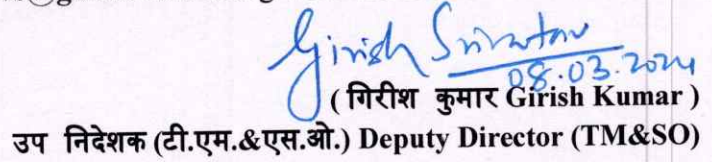 Girish Srivastav
08.03.2024
( गिरीश कुमार Girish Kumar )
उप निदेशक (टी.एम.&एस.ओ.) Deputy Director (TM&SO)